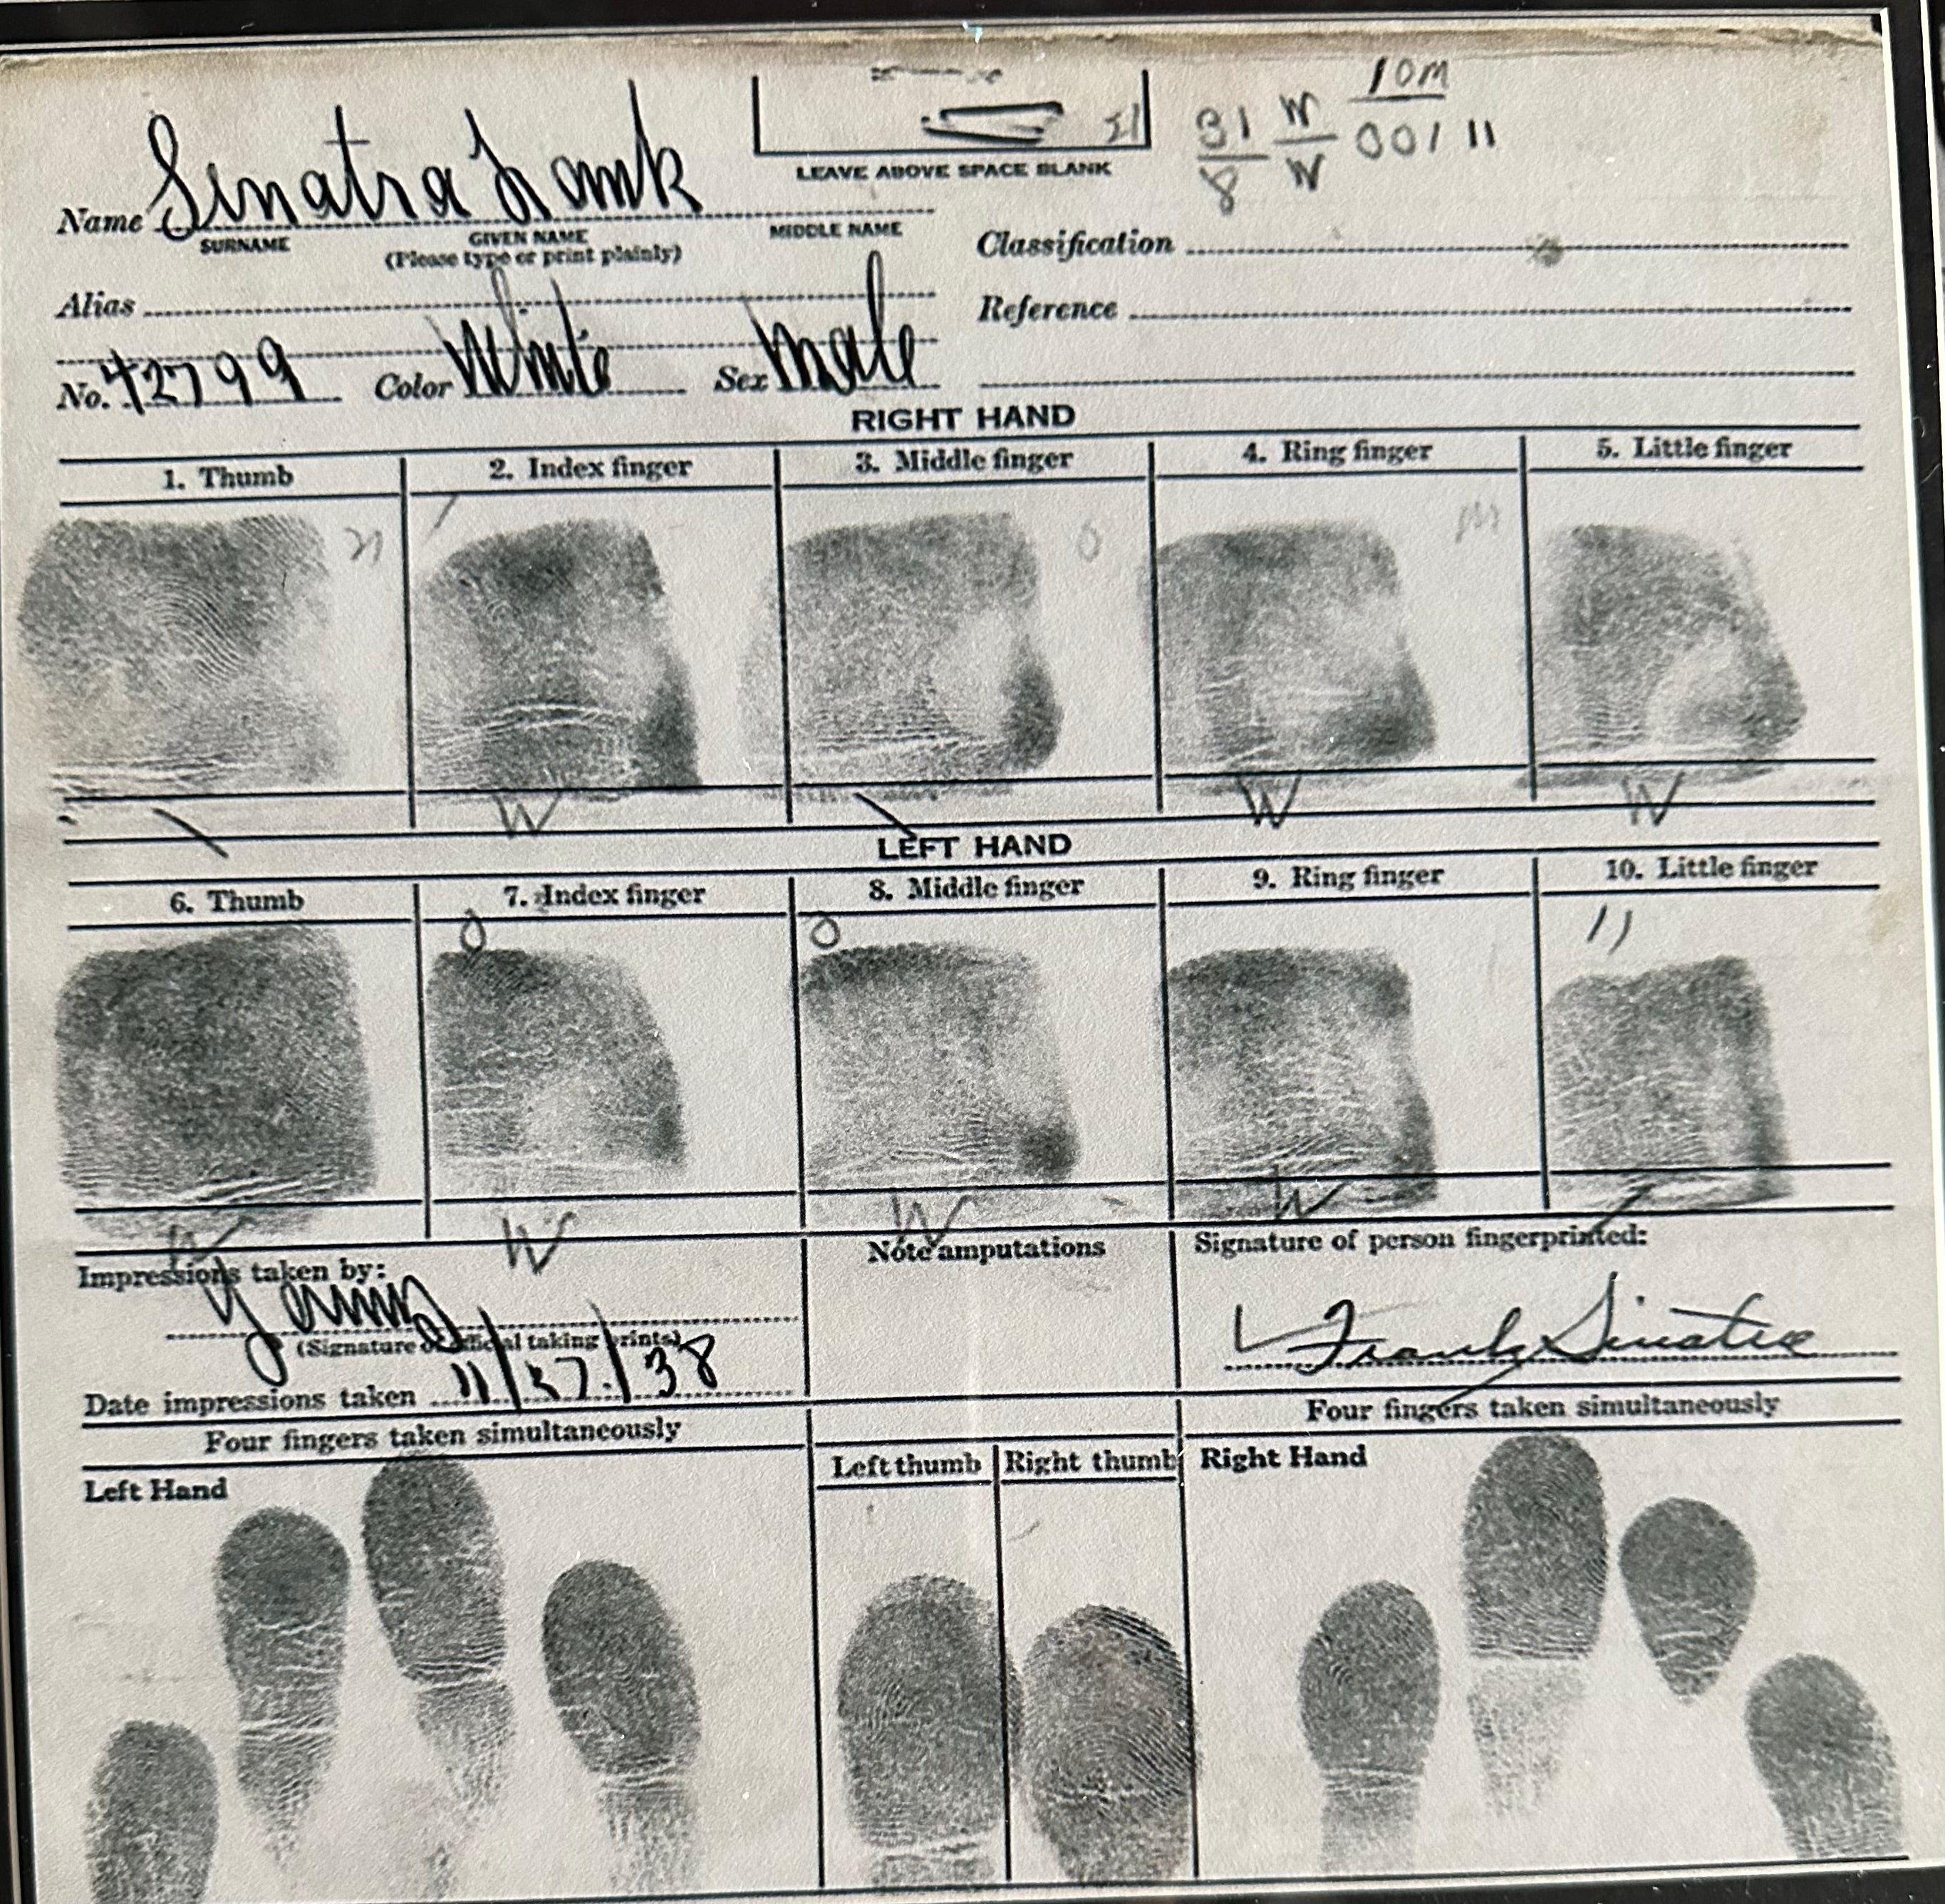 10M
31 W 00/ 11
8 W
LEAVE ABOVE SPACE BLANK
Name Sinatra Frank
SURNAME GIVEN NAME MIDDLE NAME
(Please type or print plainly)
Classification
Alias
Reference
No. 42799 Color White Sex Male
RIGHT HAND
1. Thumb 2. Index finger 3. Middle finger 4. Ring finger 5. Little finger
21 0 M
\ W \ W W
LEFT HAND
6. Thumb 7. Index finger 8. Middle finger 9. Ring finger 10. Little finger
0 0 11
W W W W /
Impressions taken by: Note amputations Signature of person fingerprinted:
Frank Sinatra
(Signature of official taking prints)
Date impressions taken 11/27/38
Four fingers taken simultaneously Four fingers taken simultaneously
Left Hand Left thumb Right thumb Right Hand